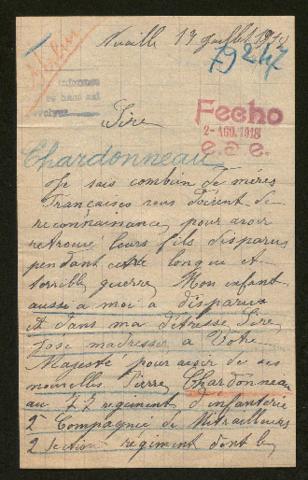 Neuille 19 Juillet 1918
79247
Fecho
2-AGO.1918
e.a e.
Sire
Chardonneau
Je sais combien de mères
Françaises vous doivent de
reconnaissance pour avoir
retrouvé leurs fils disparus
pendant cette longue et
terrible guerre, Mon enfant
aussi a moi a disparu
et dans ma détresse Sire
J'ose m'adresser à Votre
Majesté pour avoir de ses
nouvelles Pierre, Chardonneau
au 77 regiment d'infanterie
2e Compagnie de Mitrailleuses
2 section regiment dont le